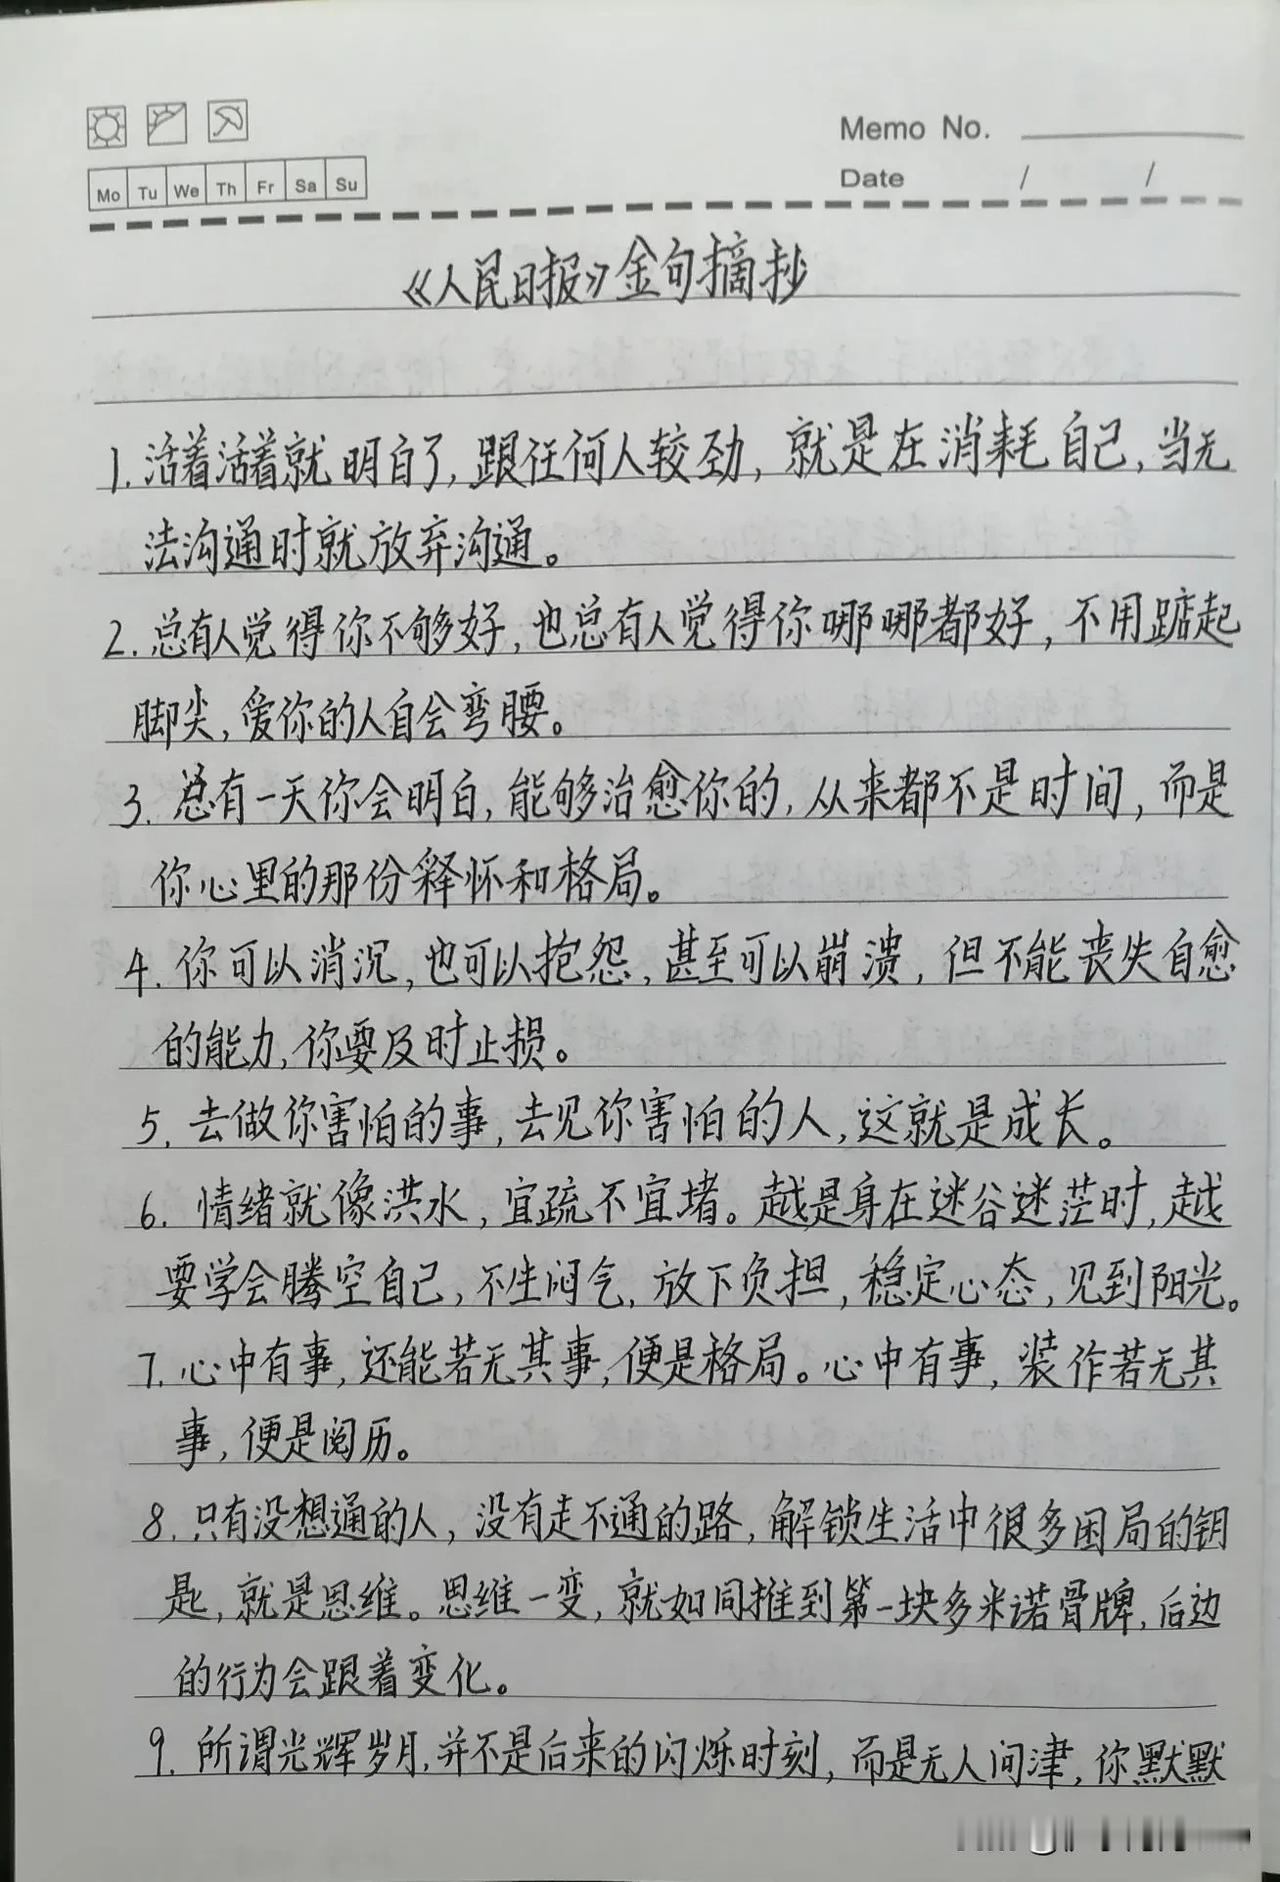 Memo No.
Mo Tu We Th Fr Sa Su
Date / /
《人民日报》金句摘抄
1. 活着活着就明白了,跟任何人较劲,就是在消耗自己,当无
法沟通时就放弃沟通。
2. 总有人觉得你不够好,也总有人觉得你哪哪都好,不用踮起
脚尖,爱你的人自会弯腰。
3. 总有一天你会明白,能够治愈你的,从来都不是时间,而是
你心里的那份释怀和格局。
4. 你可以消沉,也可以抱怨,甚至可以崩溃,但不能丧失自愈
的能力,你要及时止损。
5. 去做你害怕的事,去见你害怕的人,这就是成长。
6. 情绪就像洪水,宜疏不宜堵。越是身在迷谷迷茫时,越
要学会腾空自己,不生闷气,放下负担,稳定心态,见到阳光。
7. 心中有事,还能若无其事,便是格局。心中有事,装作若无其
事,便是阅历。
8. 只有没想通的人,没有走不通的路,解锁生活中很多困局的钥
匙,就是思维。思维一变,就如同推到第一块多米诺骨牌,后边
的行为会跟着变化。
9. 所谓光辉岁月,并不是后来的闪烁时刻,而是无人问津,你默默